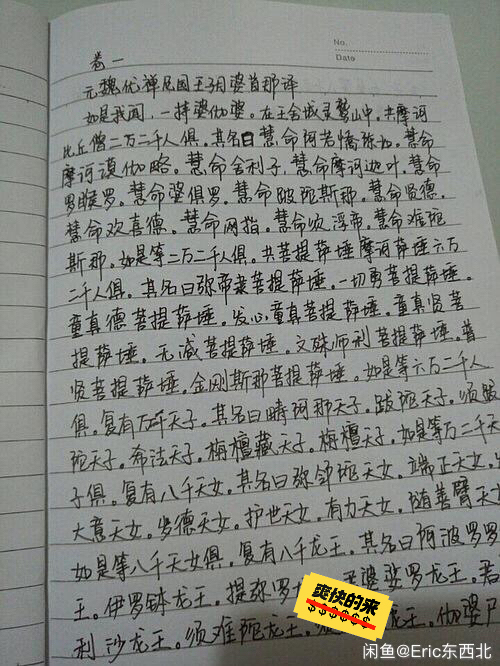 No.
Date
卷一
元魏优禅尼国王子月婆首那译
如是我闻,一时婆伽婆。在王舍城灵鹫山中。共摩诃
比丘僧二万二千人俱。其名曰慧命阿若憍陈如。慧命
摩诃谟伽略。慧命舍利子。慧命摩诃迦叶。慧命
罗睺罗。慧命婆俱罗。慧命跋陀斯那。慧命贤德。
慧命欢喜德。慧命网指。慧命须浮帝。慧命难陀
斯那。如是等二万二千人俱。共菩提萨埵摩诃萨埵六万
二千人俱。其名曰弥帝隶菩提萨埵。一切勇菩提萨埵。
童真德菩提萨埵。发心童真菩提萨埵。童真贤菩
提萨埵。无减菩提萨埵。文殊师利菩提萨埵。普
贤菩提萨埵。金刚斯那菩提萨埵。如是等六万二千人
俱。复有万二千天子。其名曰畴诃那天子。跋陀天子。须跋
陀天子。希法天子。栴檀藏天子。栴檀天子。如是等万二千天
子俱。复有八千天女。其名曰弥邻陀天女。端正天女。
大意天女。岁德天女。护世天女。有力天女。随善臂天
如是等八千天女俱。复有八千龙王。其名曰阿波罗罗
王。伊罗钵龙王。提弥罗 婆娑罗龙王。君
利沙龙王。须难陀龙王。 龙王。伽婆尸
爽快的来
$$$$$$
闲鱼@Eric东西北